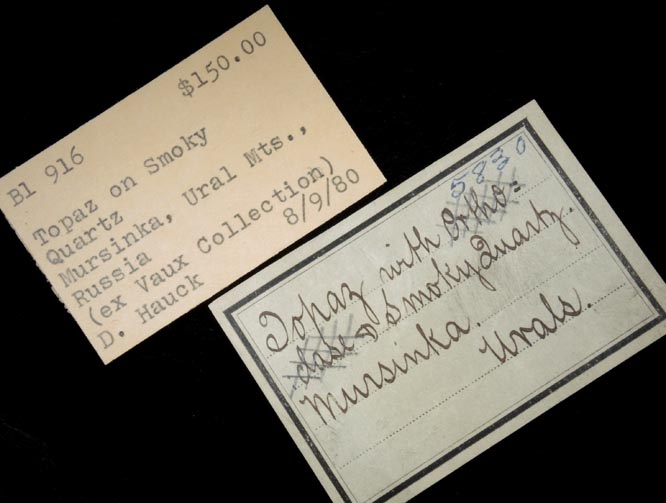 Bl 916
$150.00
Topaz on Smoky
Quartz
Mursinka, Ural Mts.,
Russia
(ex Vaux Collection)
D. Hauck
8/9/80
5830
Topaz with Ortho=
clase & Smoky Quartz.
Mursinka. Urals.